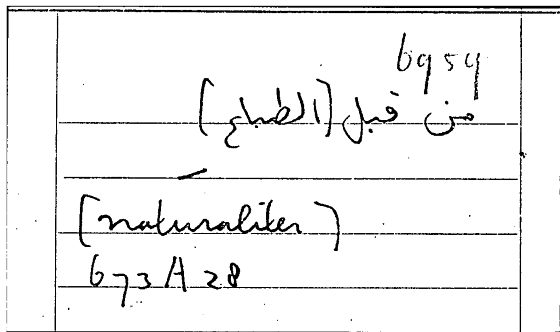 6959
من قبل [الطباع]
[naturaliter]
673 A 28